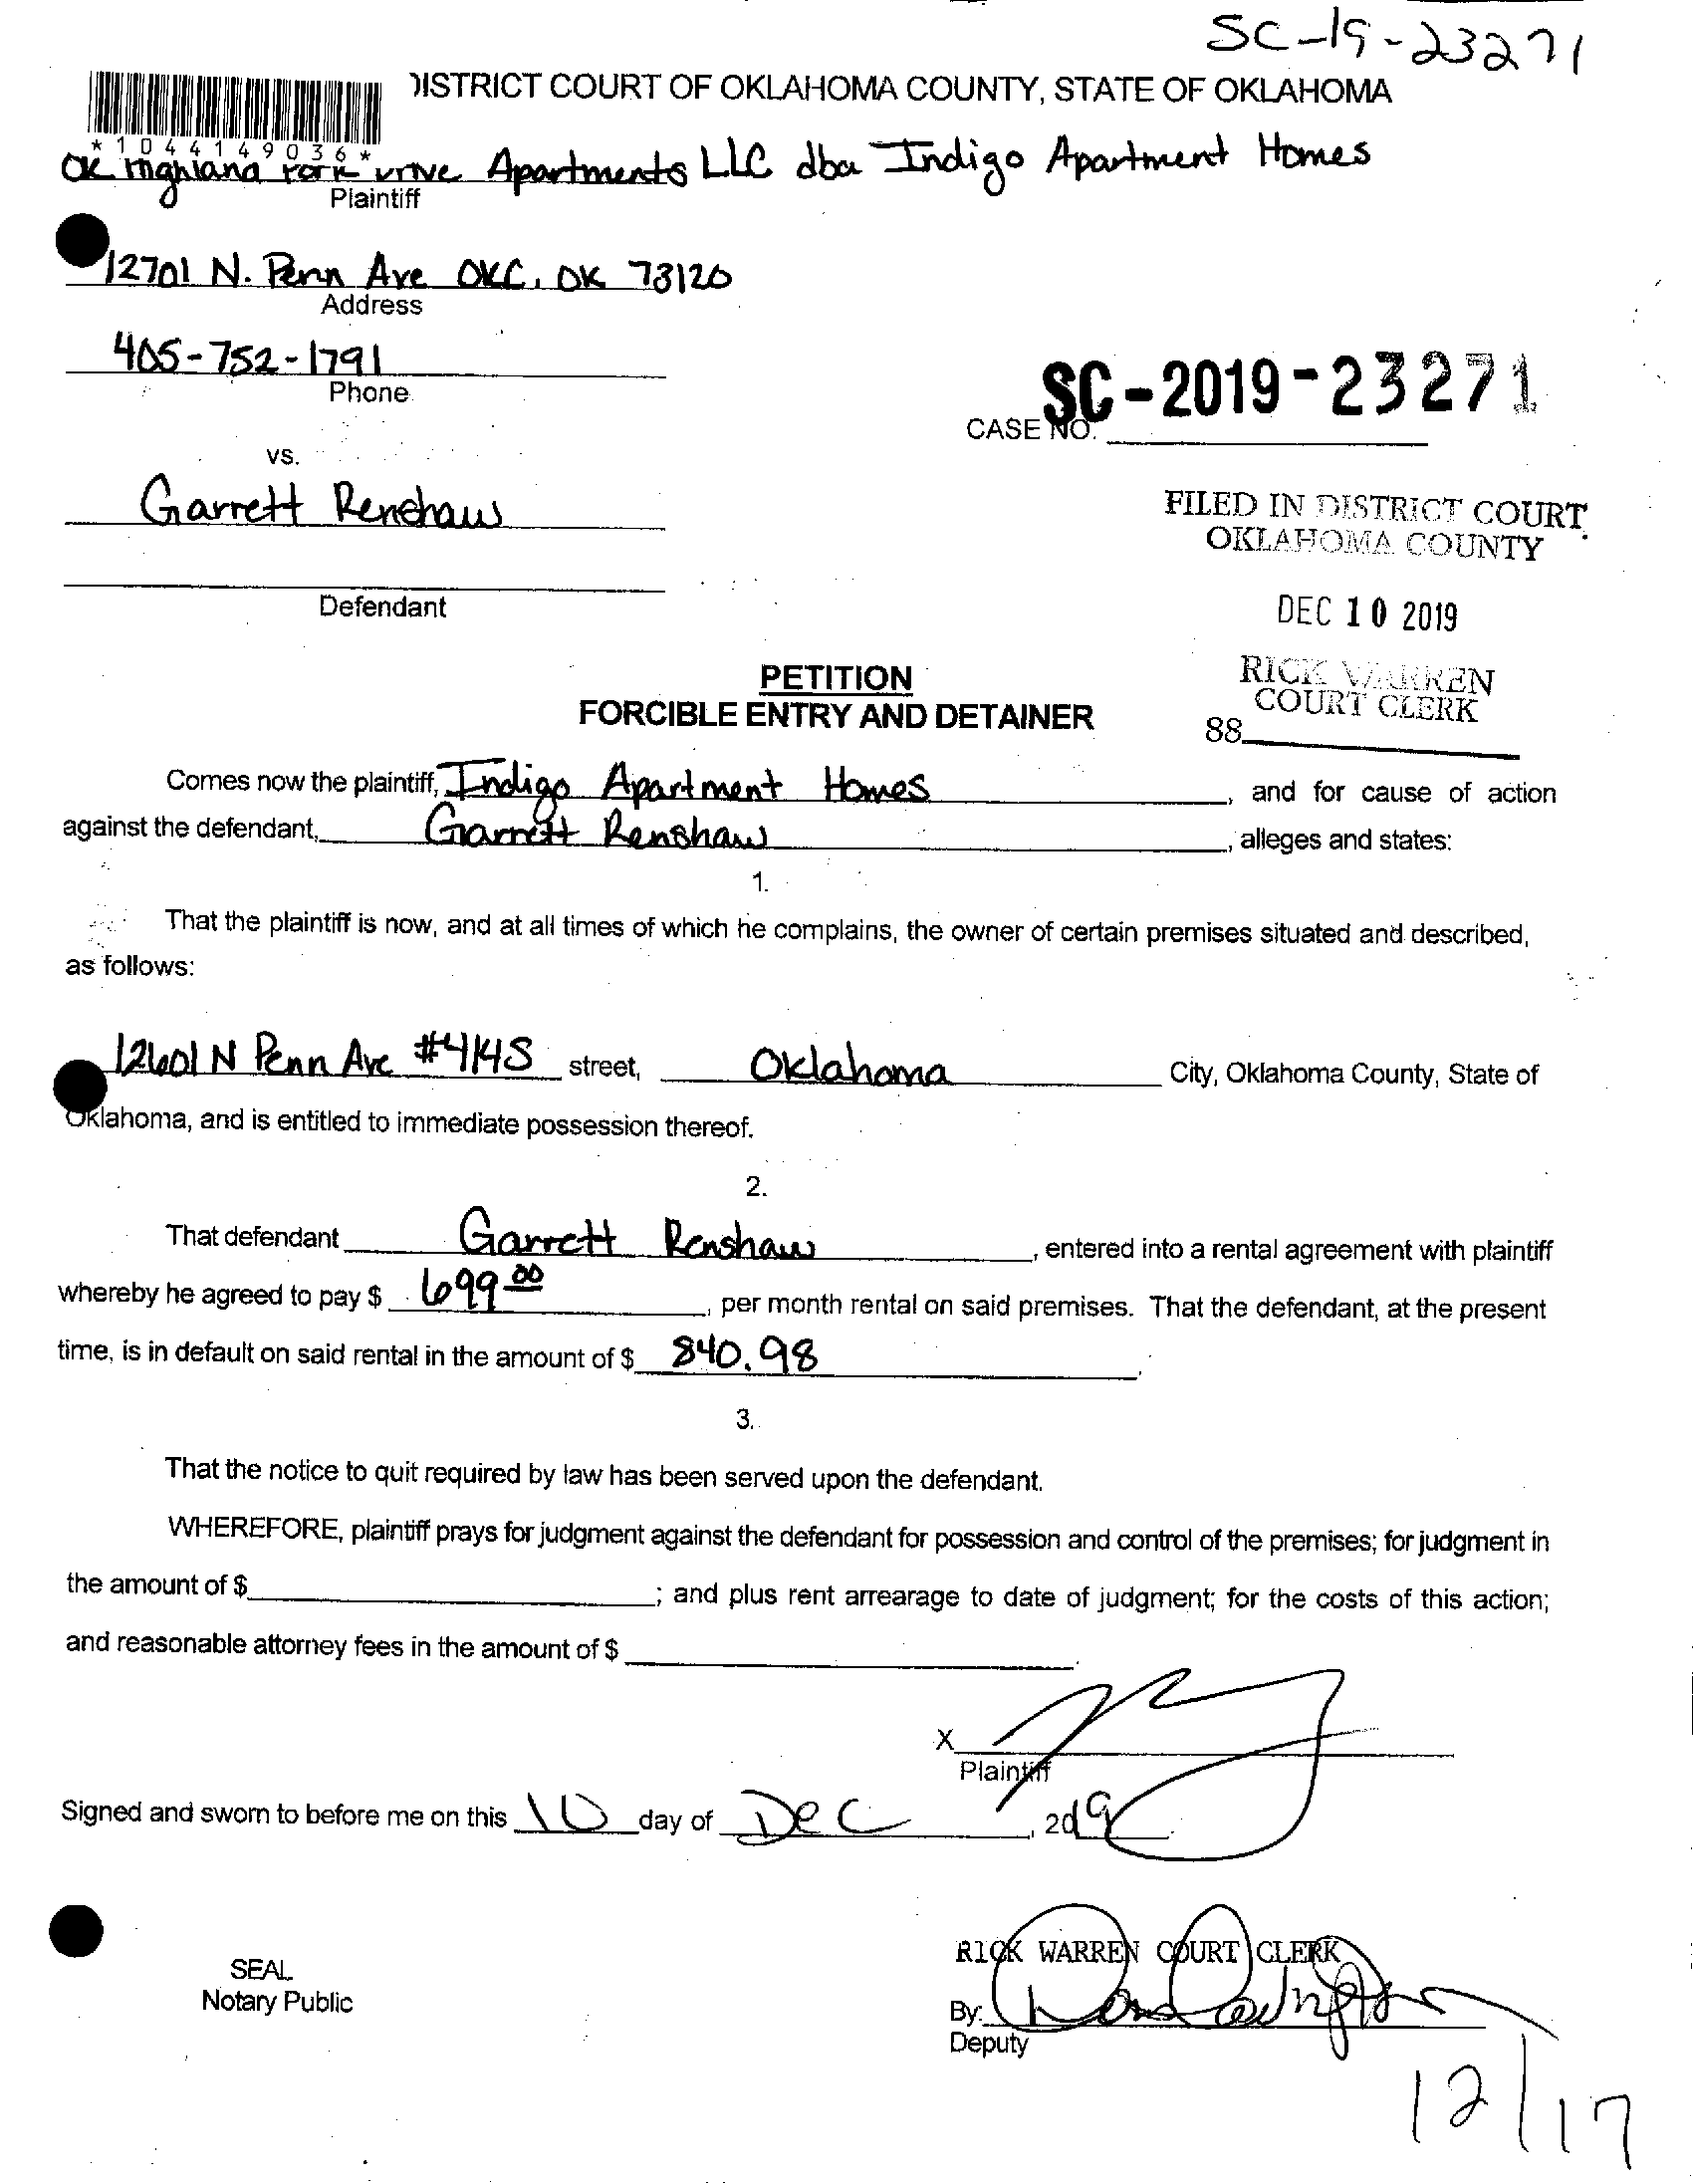 SC-19-23271
DISTRICT COURT OF OKLAHOMA COUNTY, STATE OF OKLAHOMA
*1044149036*
OK Highland Park Drive Apartments LLC dba Indigo Apartment Homes
Plaintiff
12701 N. Penn Ave OKC, OK 73120
Address
405-752-1791
Phone
SC-2019-23271
CASE NO.
vs.
Garrett Renshaw
FILED IN DISTRICT COURT
OKLAHOMA COUNTY
Defendant
DEC 10 2019
PETITION
RICK WARREN
COURT CLERK
FORCIBLE ENTRY AND DETAINER
88
Comes now the plaintiff, Indigo Apartment Homes, and for cause of action
against the defendant, Garrett Renshaw, alleges and states:
1.
That the plaintiff is now, and at all times of which he complains, the owner of certain premises situated and described,
as follows:
12601 N Penn Ave #414S street, Oklahoma City, Oklahoma County, State of
Oklahoma, and is entitled to immediate possession thereof.
2.
That defendant Garrett Renshaw, entered into a rental agreement with plaintiff
whereby he agreed to pay $ 699.00, per month rental on said premises. That the defendant, at the present
time, is in default on said rental in the amount of $ 840.98.
3.
That the notice to quit required by law has been served upon the defendant.
WHEREFORE, plaintiff prays for judgment against the defendant for possession and control of the premises; for judgment in
the amount of $ ; and plus rent arrearage to date of judgment; for the costs of this action;
and reasonable attorney fees in the amount of $ .
X
Plaintiff
Signed and sworn to before me on this 10 day of Dec, 2019.
SEAL
Notary Public
RICK WARREN COURT CLERK
By:
Deputy
12/17